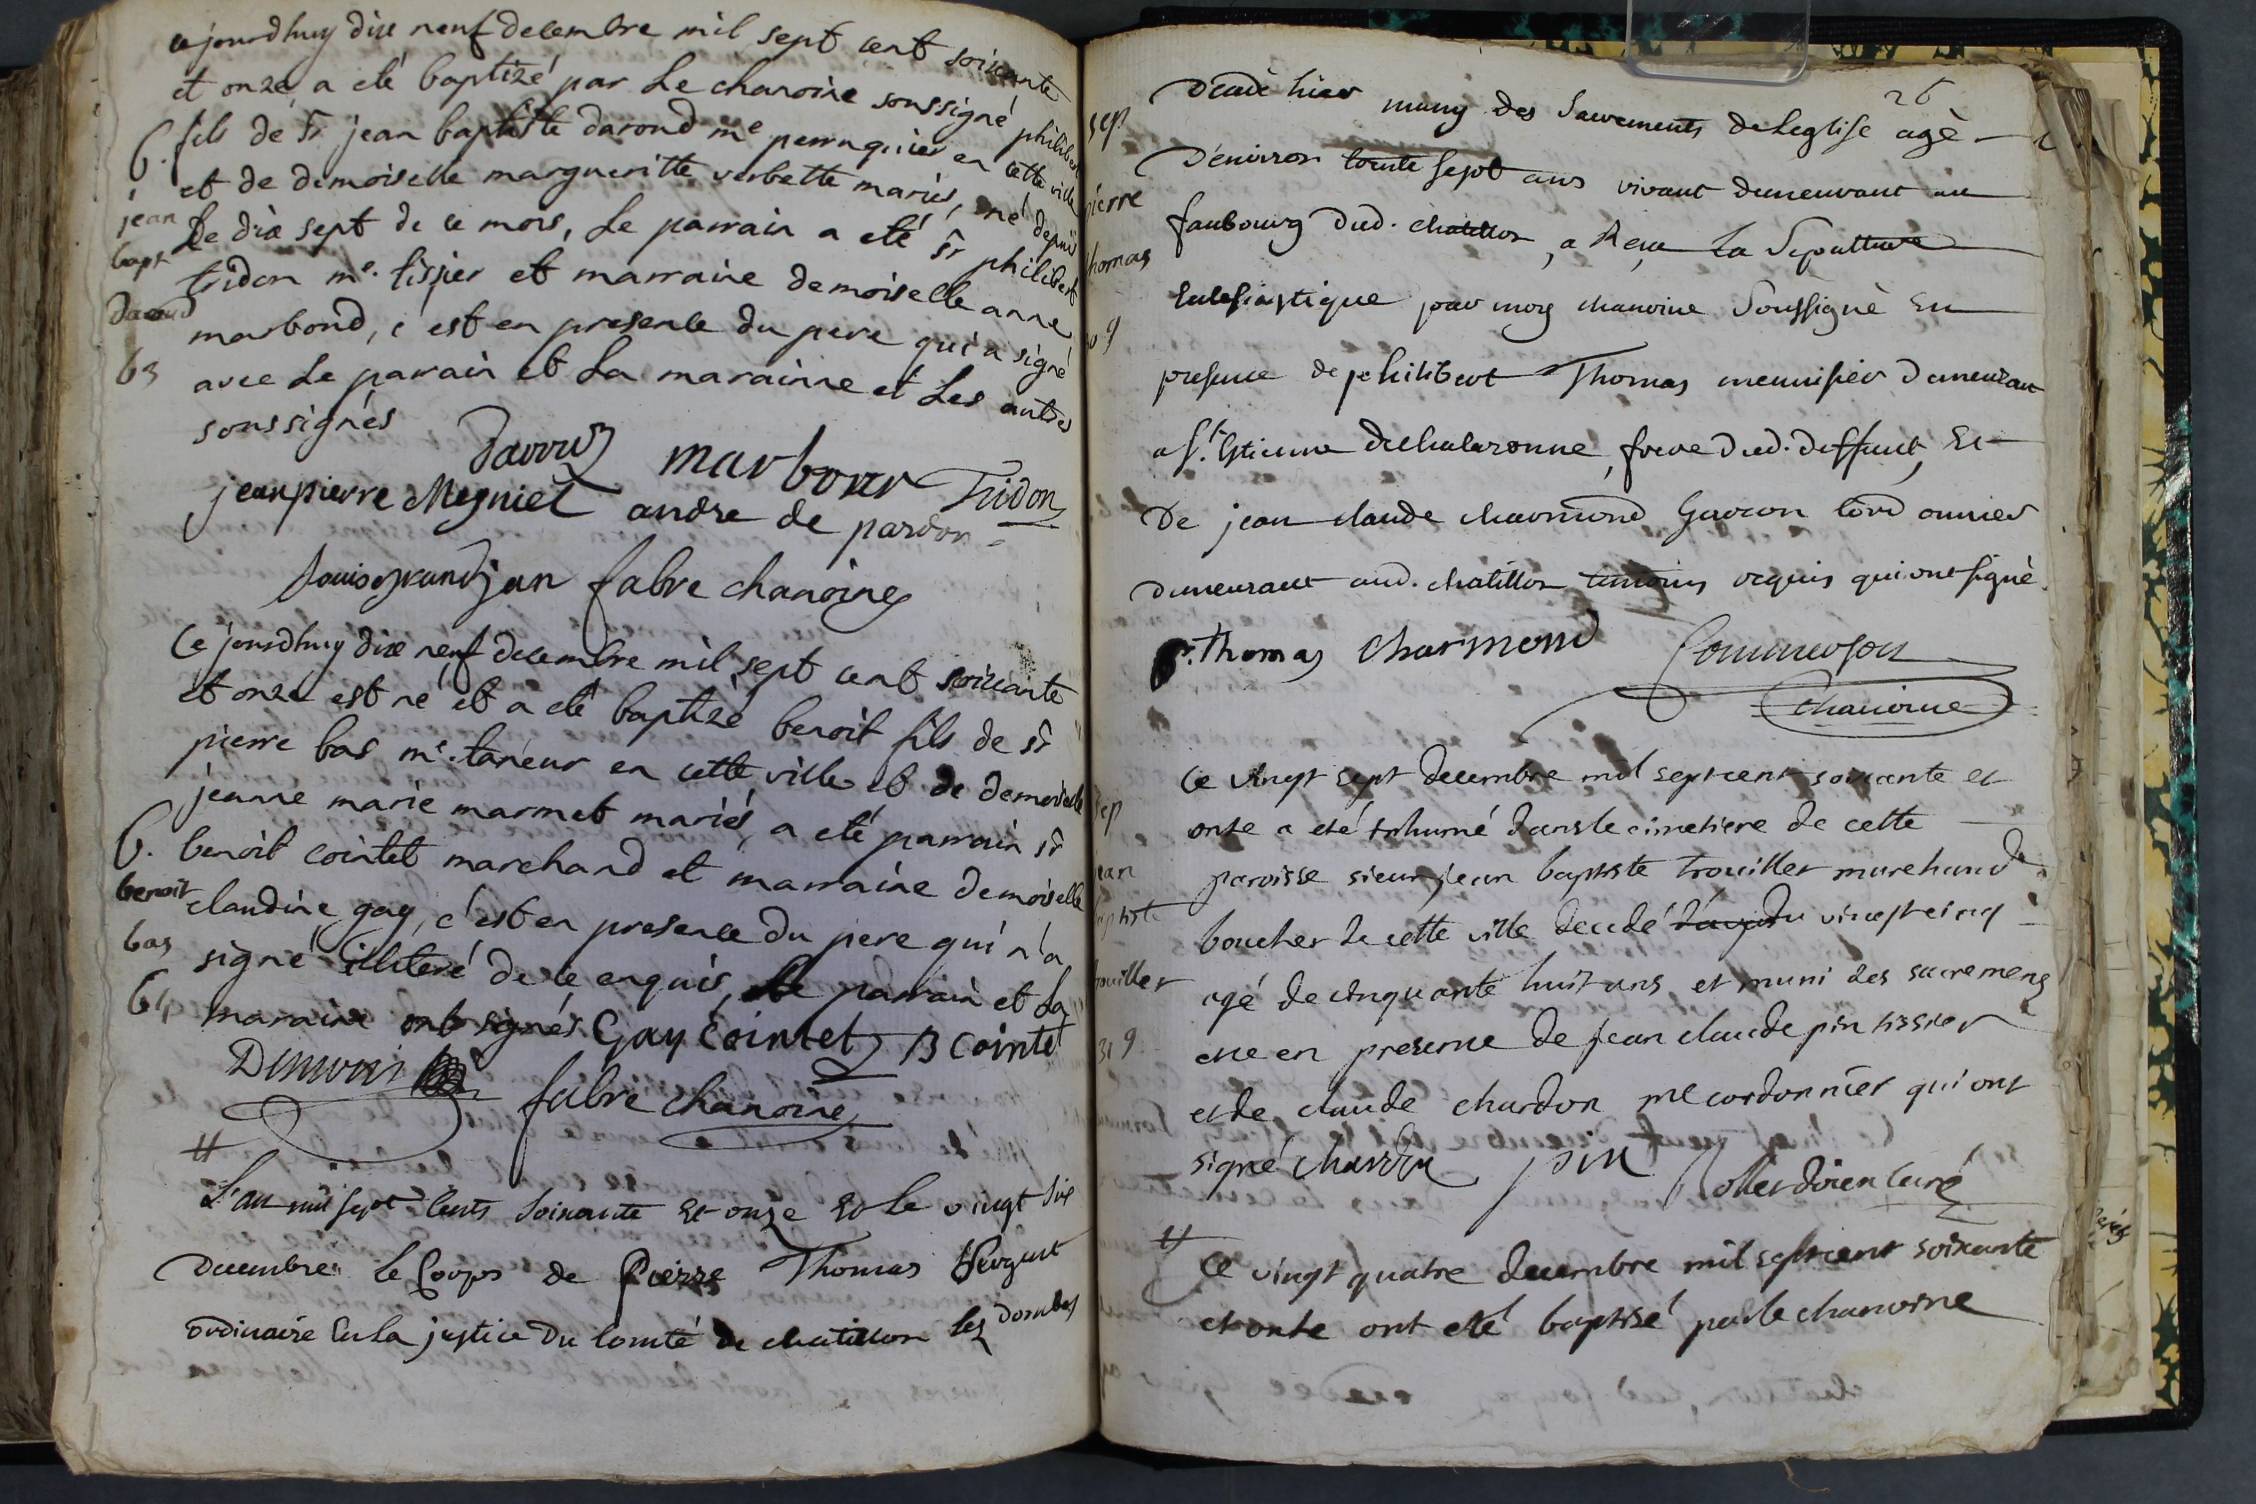 ce jourdhuy dix neuf decembre mil sept cent soixante
et onze a eté baptizé par Le chanoine soussigné philibert
fils de Sr jean baptiste darond me perruquier en cette ville
et de demoiselle margueritte verbette mariés, né depuis
Le dix sept de ce mois, Le parrain a eté Sr philibert
tridon me. tissier et marraine demoiselle anne
marbond, c'est en presence du pere qui a signé
avec Le parrain et La marainne et Les autres
soussignés
b.
jean
bapt
63
marbour Tridon
jeanpierre Megniel andre de pardon
Louis grandjan fabre chanoine
Ce jourdhuy dix neuf decembre mil sept cent soixante
et onze est né et a eté baptizé benoit fils de sr
pierre bas me. taneur en cette ville et de demoiselle
jeanne marie marmet mariés, a eté parrain sr
benoit cointet marchand et marraine demoiselle
claudine gay, c'est en presence du pere qui n'a
signé illiteré de ce enquis, Le parrain et La
maraine ont signés Gay Cointet B Cointet
b.
benoit
bas
64
fabre chanoine
L'an mil sept Cents Soixante Et onze Et Le vingt six
Decembre Le Corps de Pierre Thomas Sergent
ordinaire En La justice Du Comté de chatillon les Dombes
26
Decedé hier muny des Sacrements de Leglise agé
D'environ trente Sept ans vivant demeurant au
faubourg Dud. chatillon, a Reçu La Sepulture
Eclesiastique par moy chanoine Soussigné En
presence de philibert Thomas menuisier demeurant
a St. Estienne de chalaronne, frere dud. deffunt, Et
De jean claude charmond Garcon Cordonnier
demeurant aud. chatillon temoins requis qui ont signé.
sep
pierre
thomas
Thomas Charmond Commerson
Chanoine
Ce vingt sept decembre mil septcent soixante et
onze a eté inhumé dans le cimetiere de cette
paroisse sieur jean baptiste trouiller marchand
boucher de cette ville decedé du vingt cinq
agé de cinquante huit ans et muni des sacremens
en presence de jean claude pin tissier
et de claude chardon me cordonnier qui ont
signé chardon pin
sep
jean
baptiste
trouiller
Ce vingt quatre decembre mil septcent soixante
et onze ont eté baptisé par le chanoine